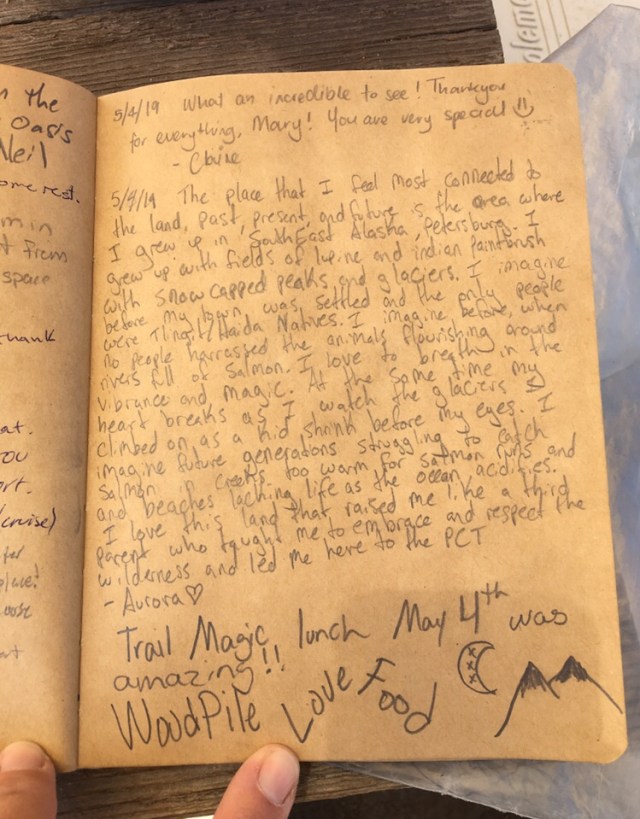 n the
Oasis
Neil
ome rest.
m in
t from
space
thank
at.
you
ort.
(cruise)
for
place!
at
5/4/19 What an incredible to see! Thankyou
for everything, Mary! You are very special!
- Claire
5/4/19 The place that I feel most connected to
the land, past, present, and future is the area where
I grew up in SouthEast Alaska, Petersburg. I
grew up with fields of lupine and indian paintbrush
with snow capped peaks and glaciers. I imagine
before my town was settled and the only people
were Tlingit/Haida Natives. I imagine before, when
no people harrassed the animals flourishing around
rivers full of salmon. I love to breath in the
vibrance and magic. At the same time my
heart breaks as I watch the glaciers I
climbed on as a kid shrink before my eyes. I
imagine future generations struggling to catch
salmon in creeks too warm for salmon runs and
and beaches lacking life as the ocean acidifies.
I love this land that raised me like a third
parent who taught me to embrace and respect the
wilderness and led me here to the PCT
- Aurora ♡
Trail Magic lunch May 4th was
amazing!!
WoodPile Love Food